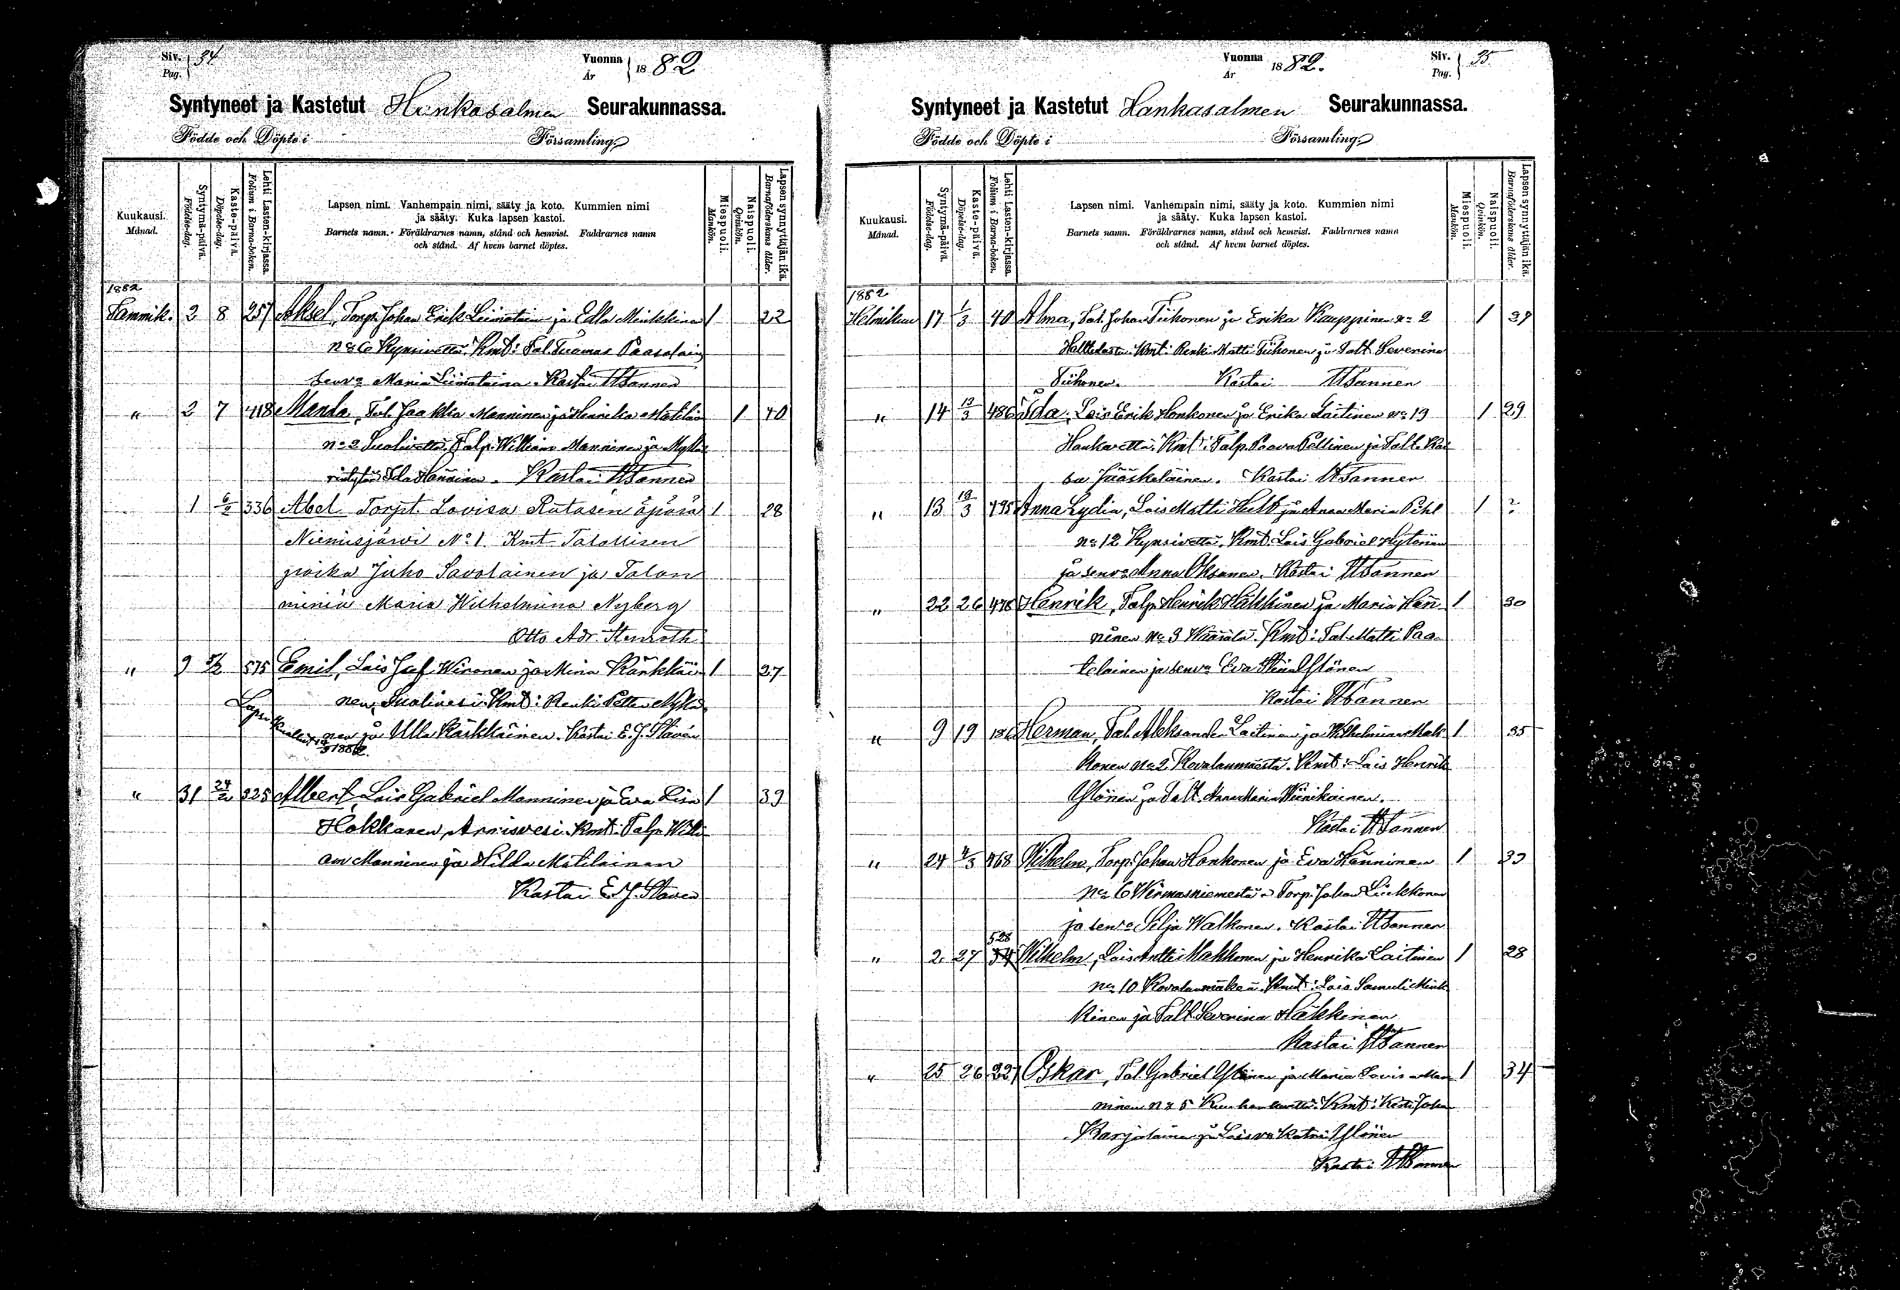 Siv. Pag. } 34
Vuonna År } 1882
Syntyneet ja Kastetut Hankasalmen Seurakunnassa.
Födde och Döpte i Församling.
Kuukausi. Månad.
Syntymä-päivä. Födelse-dag.
Kaste-päivä. Döpelse-dag.
Lehti Lasten-kirjassa. Folium i Barna-boken.
Lapsen nimi. Vanhempain nimi, sääty ja koto. Kummien nimi
ja sääty. Kuka lapsen kastoi.
Barnets namn. Föräldrarnes namn, stånd och hemvist. Faddrarnes namn
och stånd. Af hvem barnet döptes.
Miespuoli. Mankön.
Naispuoli. Qvinkön.
Lapsen synnyttäjän ikä. Barnaföderskans ålder.
1882
Tammik. 2 8 257 Aksel, Torp. Johan Erik Leinolain ja Edla Minkkinen 1 22
No 6 Kynsivettä. Kmt: Tal. Tuomas Paasolain
senva Maria Leinolaina. Kastai Wännen
" 2 7 418 Manda, Tal. Jaakko Manninen ja Henrika Matilain 1 40
No 2 Suolivettä. Talp. William Manninen ja
Ida Hänninen. Kastai Wännen
1 6/2 336 Abel Torpt. Lovisa Rutasen äpärä 1 28
Niemisjärvi No 1. Kmt Talollisen
poika Juho Savolainen ja Talon
miniä Maria Wilhelmina Nyberg
Otto Adr. Stenroth
" 9 5/2 575 Emil, Lois Jos. Wironen ja Mina Kärkkäi 1 27
nen, Suolivesi. Kmt: Renki Petter
nen ja Ulla Kärkkäinen. Kastai E. J. Stavén
Lapsi
" 31 24/2 325 Albert, Lois Gabriel Manninen ja Eva Lisa 1 39
Hokkanen, Armisvesi. Kmt: Talp. Willi
am Manninen ja Hilda Matilainen
Kastai E. J. Stavén
Siv. Pag. } 35
Vuonna År 1882.
Syntyneet ja Kastetut Hankasalmen Seurakunnassa.
Födde och Döpte i Församling.
Kuukausi. Månad.
Syntymä-päivä. Födelse-dag.
Kaste-päivä. Döpelse-dag.
Lehti Lasten-kirjassa. Folium i Barna-boken.
Lapsen nimi. Vanhempain nimi, sääty ja koto. Kummien nimi
ja sääty. Kuka lapsen kastoi.
Barnets namn. Föräldrarnes namn, stånd och hemvist. Faddrarnes namn
och stånd. Af hvem barnet döptes.
Miespuoli. Mankön.
Naispuoli. Qvinkön.
Lapsen synnyttäjän ikä. Barnaföderskans ålder.
1882
Helmikuu 17 1/3 40 Alma, Tal. Johan Tiihonen ja Erika Kauppinen No 2 1 39
Kmt: Renki Matti Tiihonen ja Talt. Severina
Tiihonen. Kastai Wännen
" 14 13/3 486 Ida, Lois Erik Honkonen ja Erika Laitinen No 19 1 29
Hankavettä. Kmt: Talp. Paavo Pellinen ja Talt. Kai
sa Jääskeläinen. Kastai Wännen
" 13 19/3 495 Anna Lydia, Lois Matti Hult ja Anna Maria Pihl 1 ?
No 12 Kynsivettä. Kmt: Lois Gabriel Hytönen
ja senva Anna Oksanen. Kastai Wännen
" 22 26 478 Henrik, Talp. Henrik Häkkinen ja Maria Hän 1 30
ninen No 3 Kmt: Tal. Matti Paa
telainen ja senva Eva Stina Ylönen
Kastai Wännen
" 9 19 186 Herman, Tal. Aleksander Laitinen ja Wilhelmina Mak 1 35
konen No 2 Kovalanmäestä. Kmt: Lois Henrik
Ylönen ja Talt. Anna Maria Wiinikainen.
Kastai Wännen
" 24 4/3 468 Wilhelm, Torp. Johan Honkonen ja Eva Hänninen 1 39
No 6 Wärmäsniemestä Torp. Johan Liukkonen
ja senva Selja Walkonen. Kastai Wännen
528
" 2. 27 Wilhelm, Lois Antti Makkonen ja Henrika Laitinen 1 28
No 10 Kovalanmäkeä. Kmt: Lois Samuli Mink
kinen ja Talt. Severina Häkkinen
Kastai Wännen
" 25 26 227 Oskar, Tal. Gabriel Ylönen ja Maria Lovisa Man 1 34
ninen No 5 Kmt: Johan
Karjalainen ja Loisva Katri Ylönen
Kastai Wännen